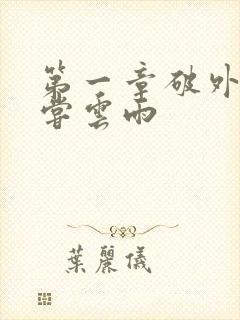 第一章破外
嘗雲雨
葉麗儀